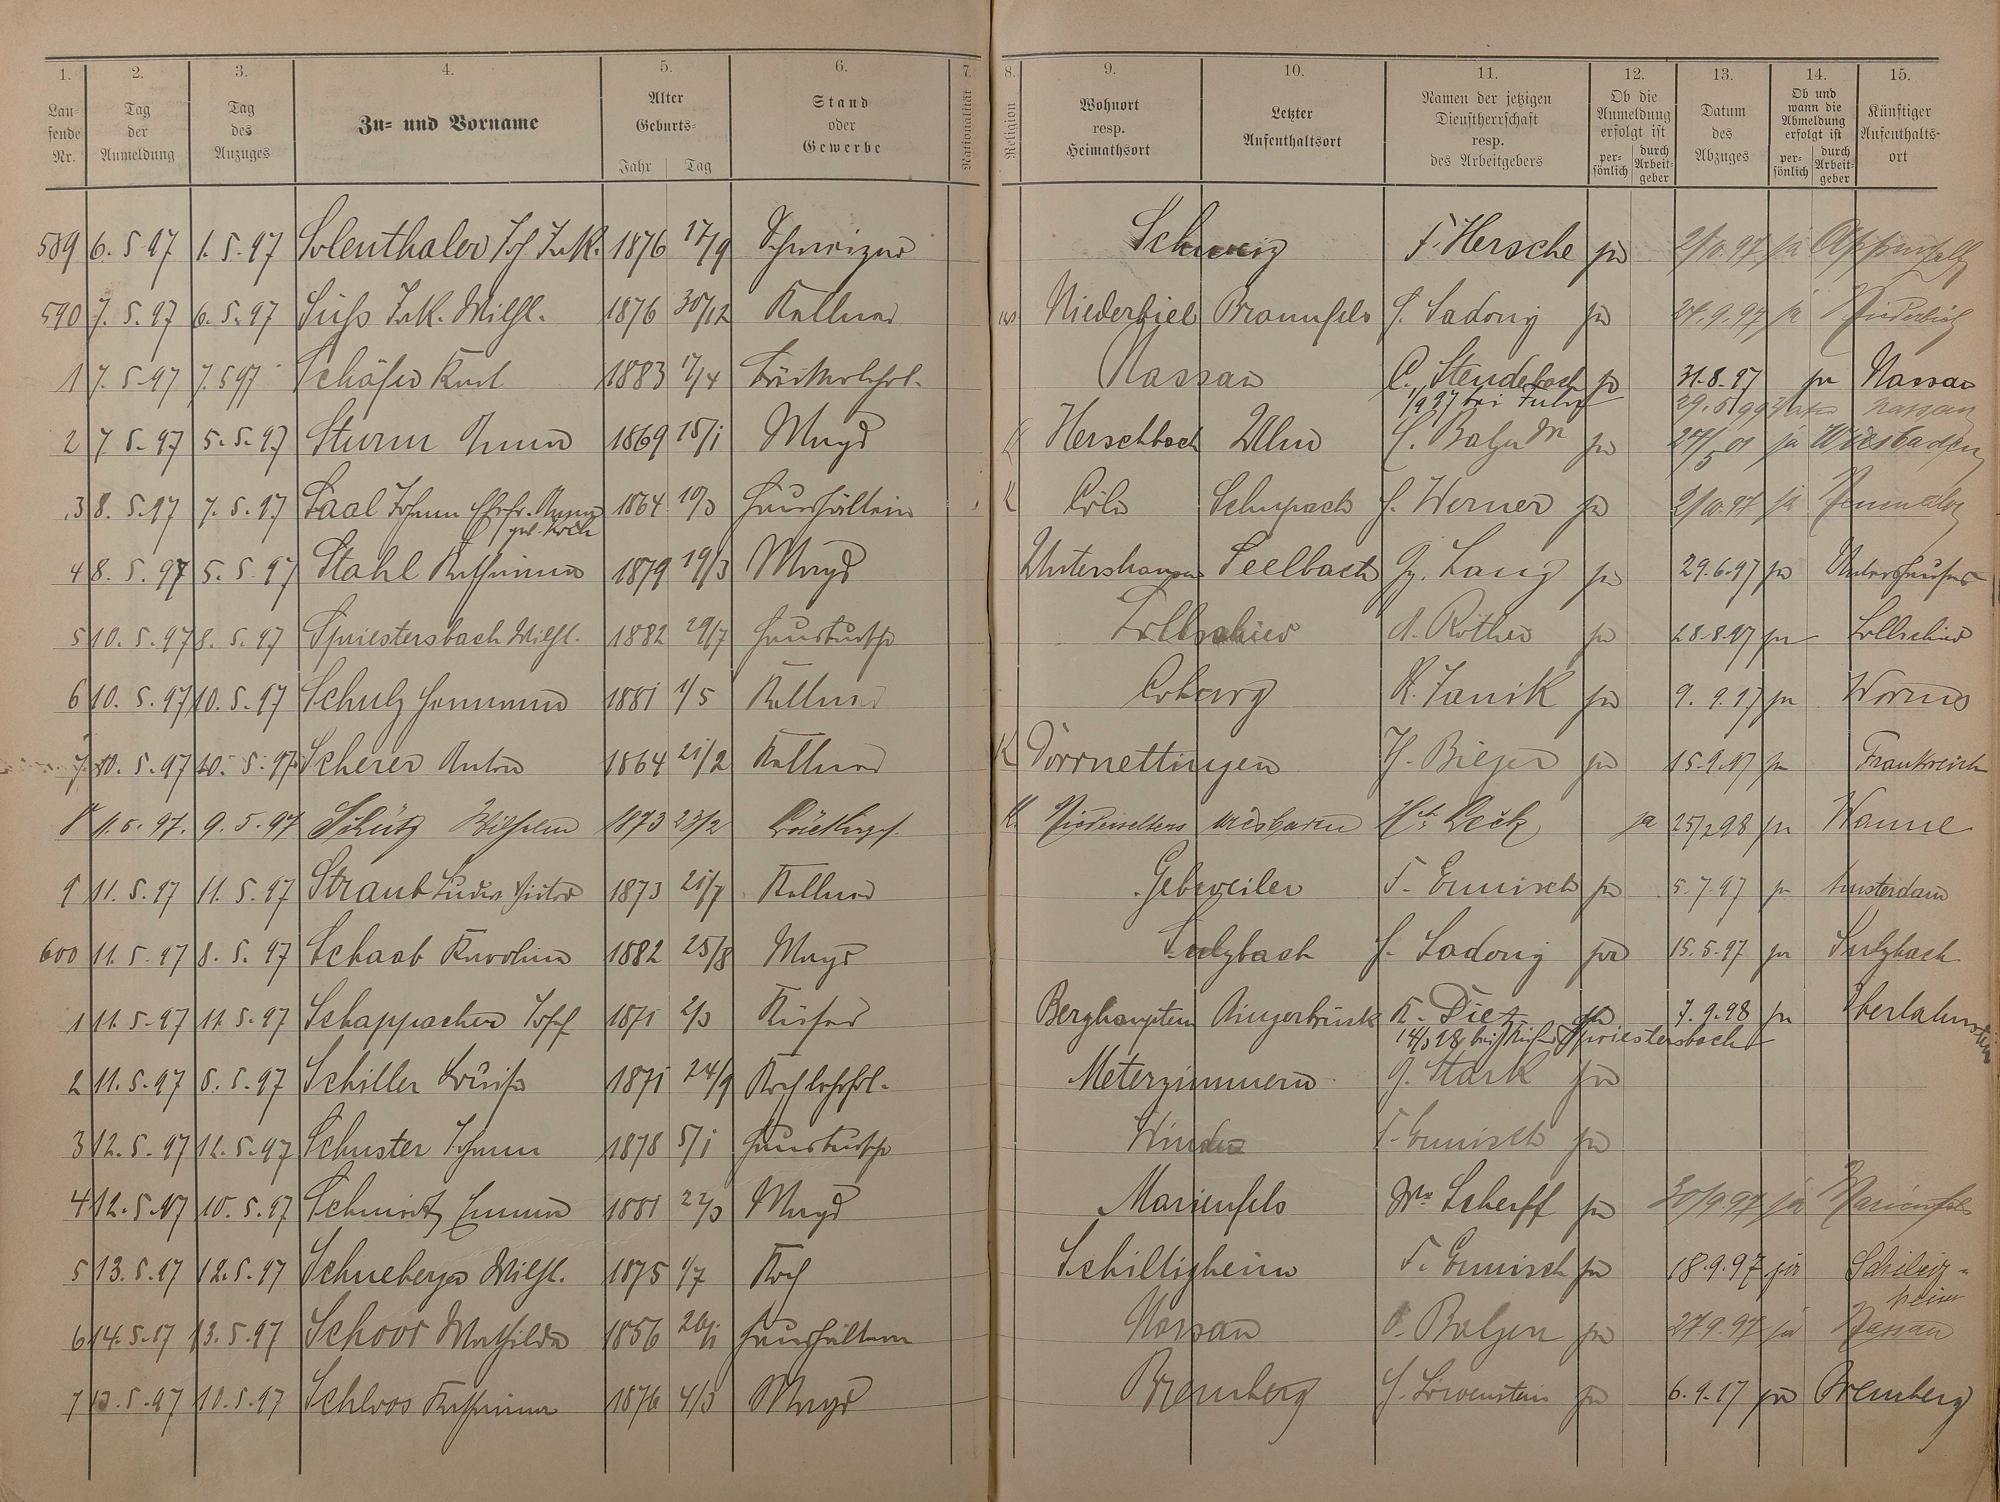 1. 2. 3. 4. 5. 6. 7. 8. 9. 10. 11. 12. 13. 14. 15.
Laufende Nr. Tag der Anmeldung Tag des Anzuges Zu- und Vorname Alter Geburts- Jahr Tag Stand oder Gewerbe Nationalität Religion Wohnort resp. Heimathsort Letzter Aufenthaltsort Namen der jetzigen Dienstherrschaft resp. des Arbeitgebers Ob die Anmeldung erfolgt ist persönlich durch Arbeitgeber Datum des Abzuges Ob und wann die Abmeldung erfolgt ist persönlich durch Arbeitgeber Künftiger Aufenthaltsort
589 6.5.97 1.5.97 Solenthaler Joh. Jak. 1876 17/9 Schweizer Schweiz F. Hersche ja 2/10.97 ja
590 7.5.97 6.5.97 Süß Jak. Wilh. 1876 30/12 Kellner Niederbiel Braunfels H. Sadony ja 24.9.97 ja Niederbiel
1 7.5.97 7.5.97 Schäfer Karl 1883 Nassau C. Stendebach ja 31.8.97 ja Nassau
1/9 97 bei 29.5.99 Nassau
2 7.5.97 5.5.97 Sturm Anna 1869 15/1 Magd K Herschbach Ulm H. Balzer ja 27/5 01 ja Wiesbaden
3 8.5.97 7.5.97 Saal Johann Ehefr. Anna 1864 10/3 Haushälterin K Cöln Schupach H. Werner ja 2/10.97 ja
geb.
4 8.5.97 5.5.97 Stahl Katharina 1879 19/3 Magd Untershausen Seelbach Lang ja 29.6.97 ja Untershausen
5 10.5.97 8.5.97 Spriestersbach Wilh. 1882 29/7 Hausbursche Lollschied A. Röther ja 28.8.97 ja Lollschied
6 10.5.97 10.5.97 Schulz Hermann 1881 1/5 Kellner Coburg K. Janik ja 9.9.97 ja Worms
7 10.5.97 10.5.97 Scherer Anton 1864 21/2 Kellner K Dörrnettingen H. Bieger ja 15.9.97 ja Frankreich
8 11.5.97. 9.5.97 Schütz Wilhelm 1873 23/2 K. Niederselters Wiesbaden ja 25/2 98 ja Wanne
9 11.5.97 11.5.97 Straub Victor 1873 21/7 Kellner Gebweiler F. Ermisch ja 5.7.97 ja Amsterdam
600 11.5.97 8.5.97 Schaab Karolina 1882 25/8 Magd Sulzbach H. Sadony ja 15.5.97 ja Sulzbach
1 11.5.97 11.5.97 Schappacher Josef 1871 2/3 Küfer Berghaupten Bingerbrück K. Diez ja 7.9.98 ja Oberlahnstein
bei Küfer Spriestersbach
2 11.5.97 5.97 Schiller Louis 1871 24/9 Kochlehrl. Meterzimmern G. Stark ja
3 12.5.97 12.5.97 Schuster Johann 1878 5/1 Hausbursche Winden F. Ermisch ja
4 12.5.97 10.5.97 Schmidt Emma 1881 22/3 Magd Marienfels Wwe Scherff ja 30/9.97 ja Marienfels
5 13.5.97 12.5.97 Schneeberger Wilh. 1875 1/7 Koch Schiltigheim F. Ermisch ja 18.9.97 ja
heim
6 14.5.97 13.5.97 Schoor Mathilde 1856 26/1 Haushälterin Nassau Balzer ja 27.9.97 ja Nassau
7 13.5.97 10.5.97 Schloos Katharina 1876 4/3 Magd Bremberg H. Löwenstein ja 6.9.97 ja Bremberg